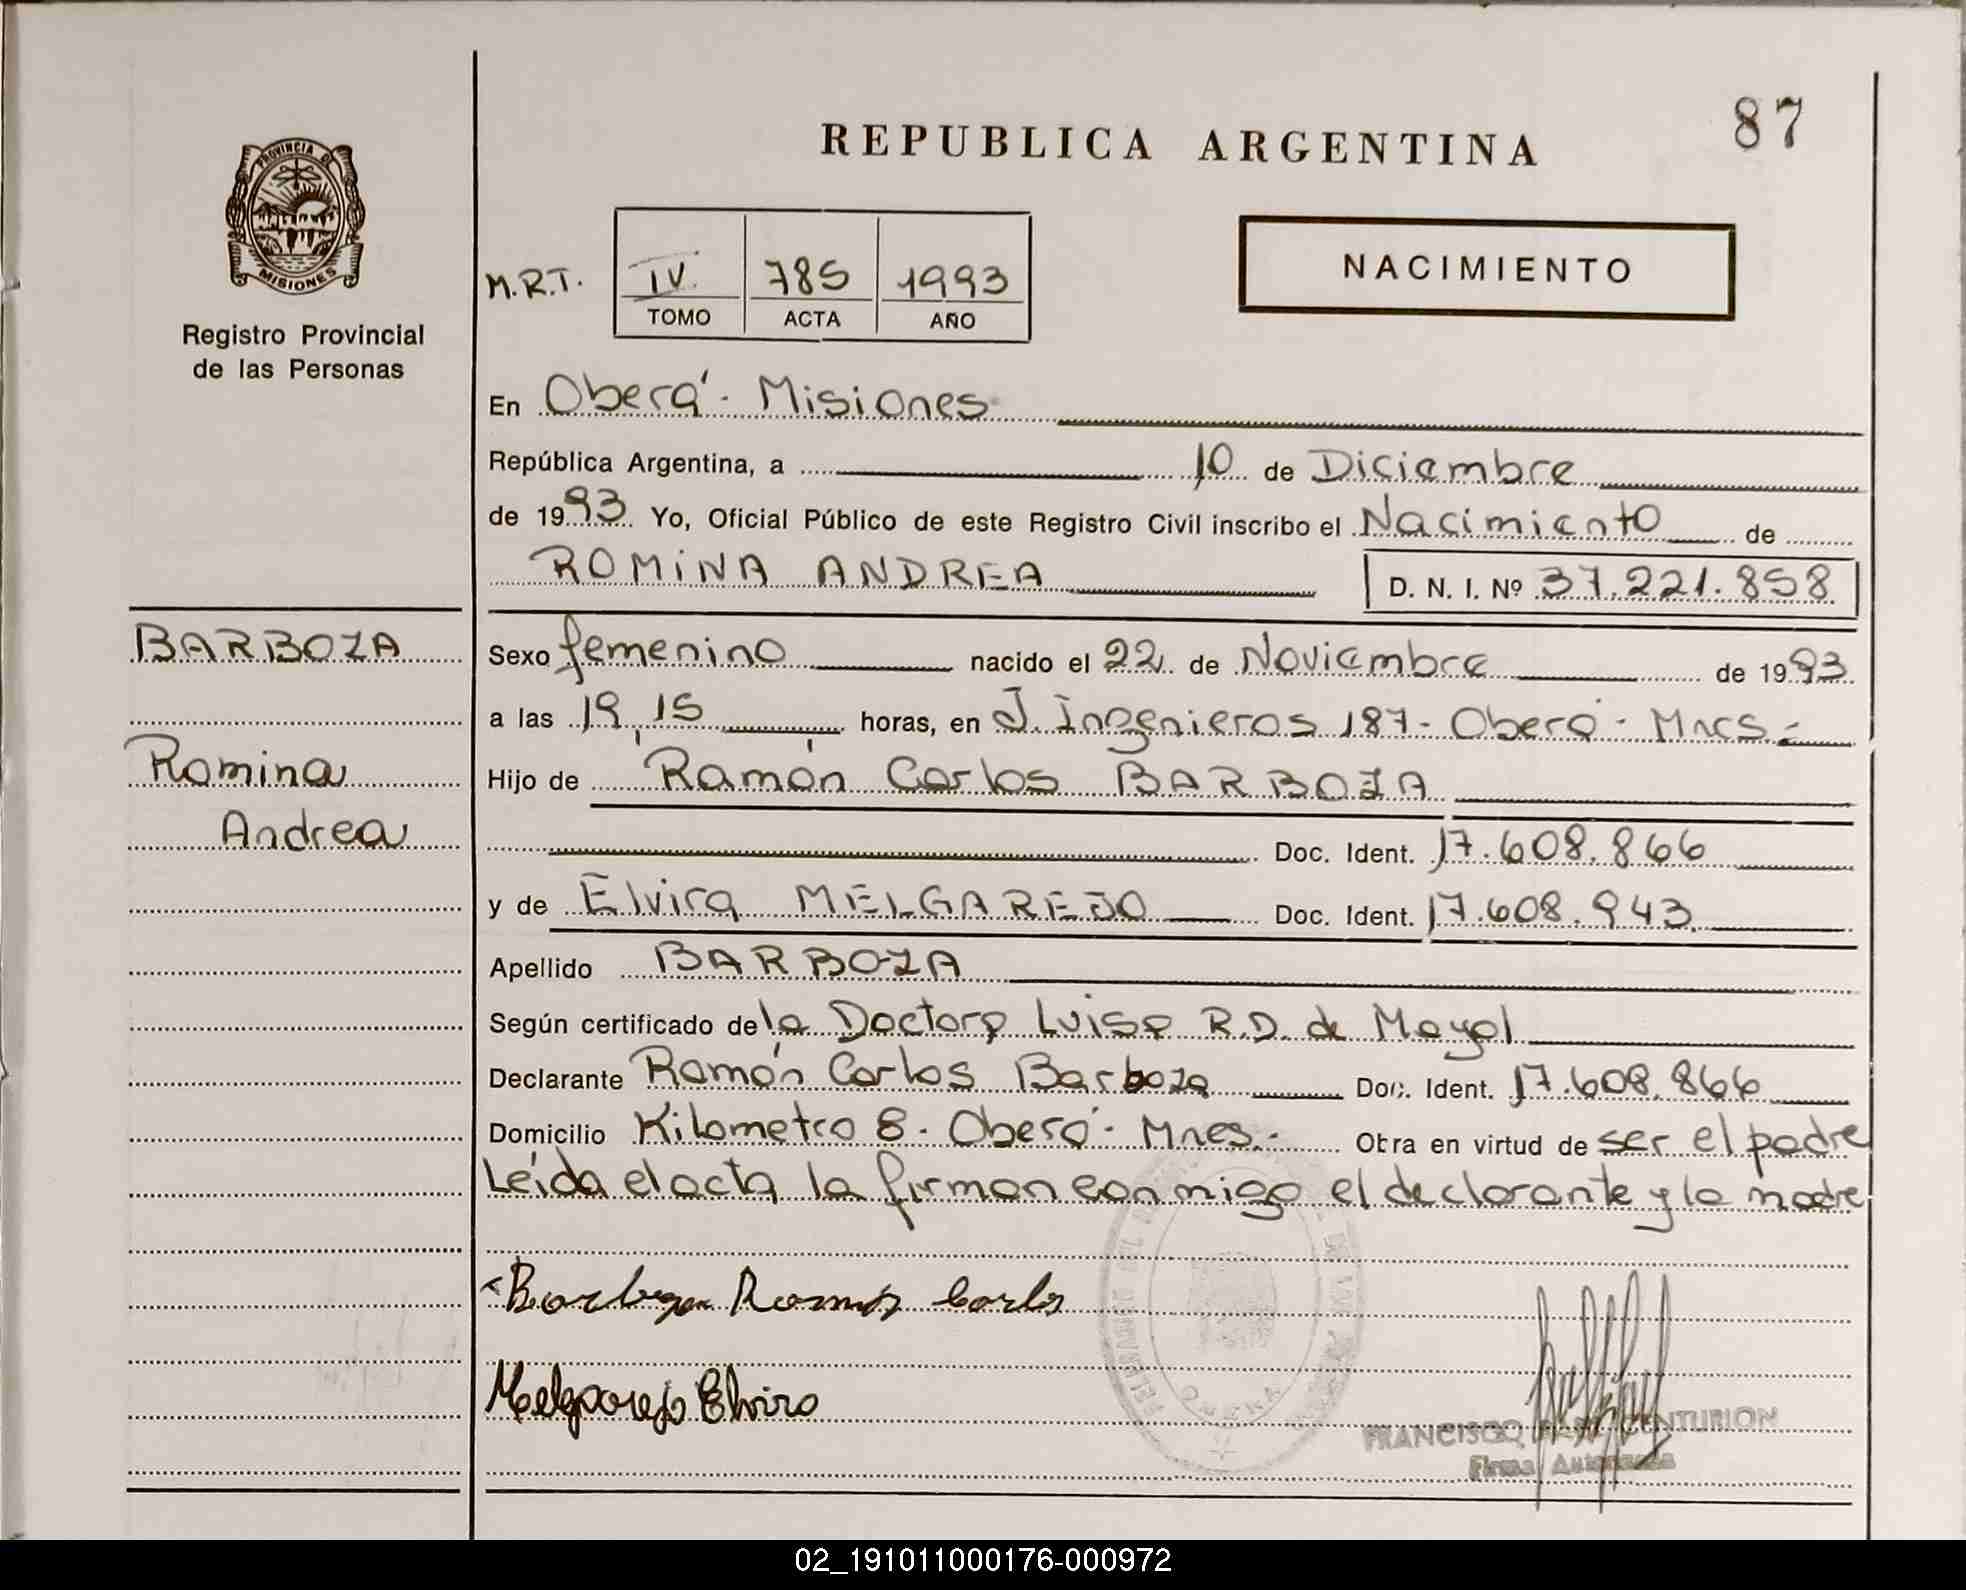 87
REPUBLICA ARGENTINA
PROVINCIA DE
MISIONES
Registro Provincial
de las Personas
M.R.T. IV. 785 1993
TOMO ACTA AÑO
NACIMIENTO
En Oberá - Misiones
República Argentina, a 10 de Diciembre
de 1993 Yo, Oficial Público de este Registro Civil inscribo el Nacimiento de
ROMINA ANDREA D. N. I. Nº 37.221.858
BARBOZA
Romina
Andrea
Sexo femenino nacido el 22 de Noviembre de 1993
a las 19,15 horas, en J. Ingenieros 187 - Oberá - Mnes.-
Hijo de Ramón Carlos BARBOZA
Doc. Ident. 17.608.866
y de Elvira MELGAREJO Doc. Ident. 17.608.943
Apellido BARBOZA
Según certificado de la Doctora Luisa R.D. de Mayol
Declarante Ramón Carlos Barboza Doc. Ident. 17.608.866
Domicilio Kilometro 8 - Oberá - Mnes.- Obra en virtud de ser el padre
Leída el acta la firman conmigo el declarante y la madre
Barboza Ramón Carlos
Melgarejo Elvira
OBERA
FRANCISCO CENTURION
Firma Autorizada
02_191011000176-000972